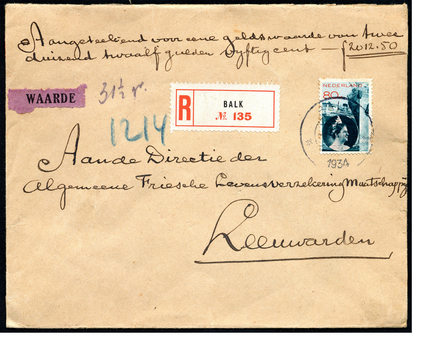 Aangeteekend voor eene geldswaarde van twee
duizend twaalf gulden vyftig cent — f 2012.50
WAARDE
31½ gr.
R
BALK
№ 135
NEDERLAND
80
1214
1934
Aan de Directie der
Algemeene Friesche Levensverzekering Maatschappij
Leeuwarden